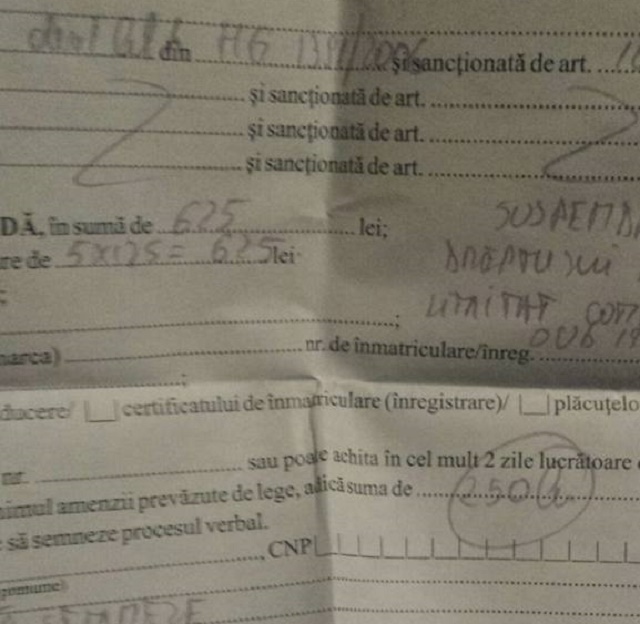 din HG 1391/2006 și sancționată de art.
și sancționată de art.
și sancționată de art.
și sancționată de art.
DĂ, în sumă de 625 lei; SUSPENDA
re de 5X125= 625 lei DREPTULUI
;
; OUG 19
marca) nr. de înmatriculare/înreg.
;
ducere/ |__| certificatului de înmatriculare (înregistrare)/ |__| plăcuțelo
nr. sau poate achita în cel mult 2 zile lucrătoare
nimul amenzii prevăzute de lege, adică suma de 250
să semneze procesul verbal.
, CNP